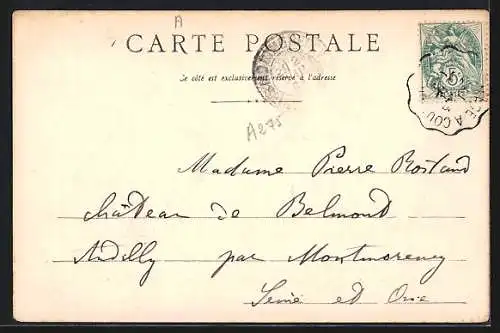 A
CARTE POSTALE
Ce côté est exclusivement réservé à l'adresse
A275
Madame Pierre Rostand
château de Belmont
Andilly par Montmorency
Seine et Oise